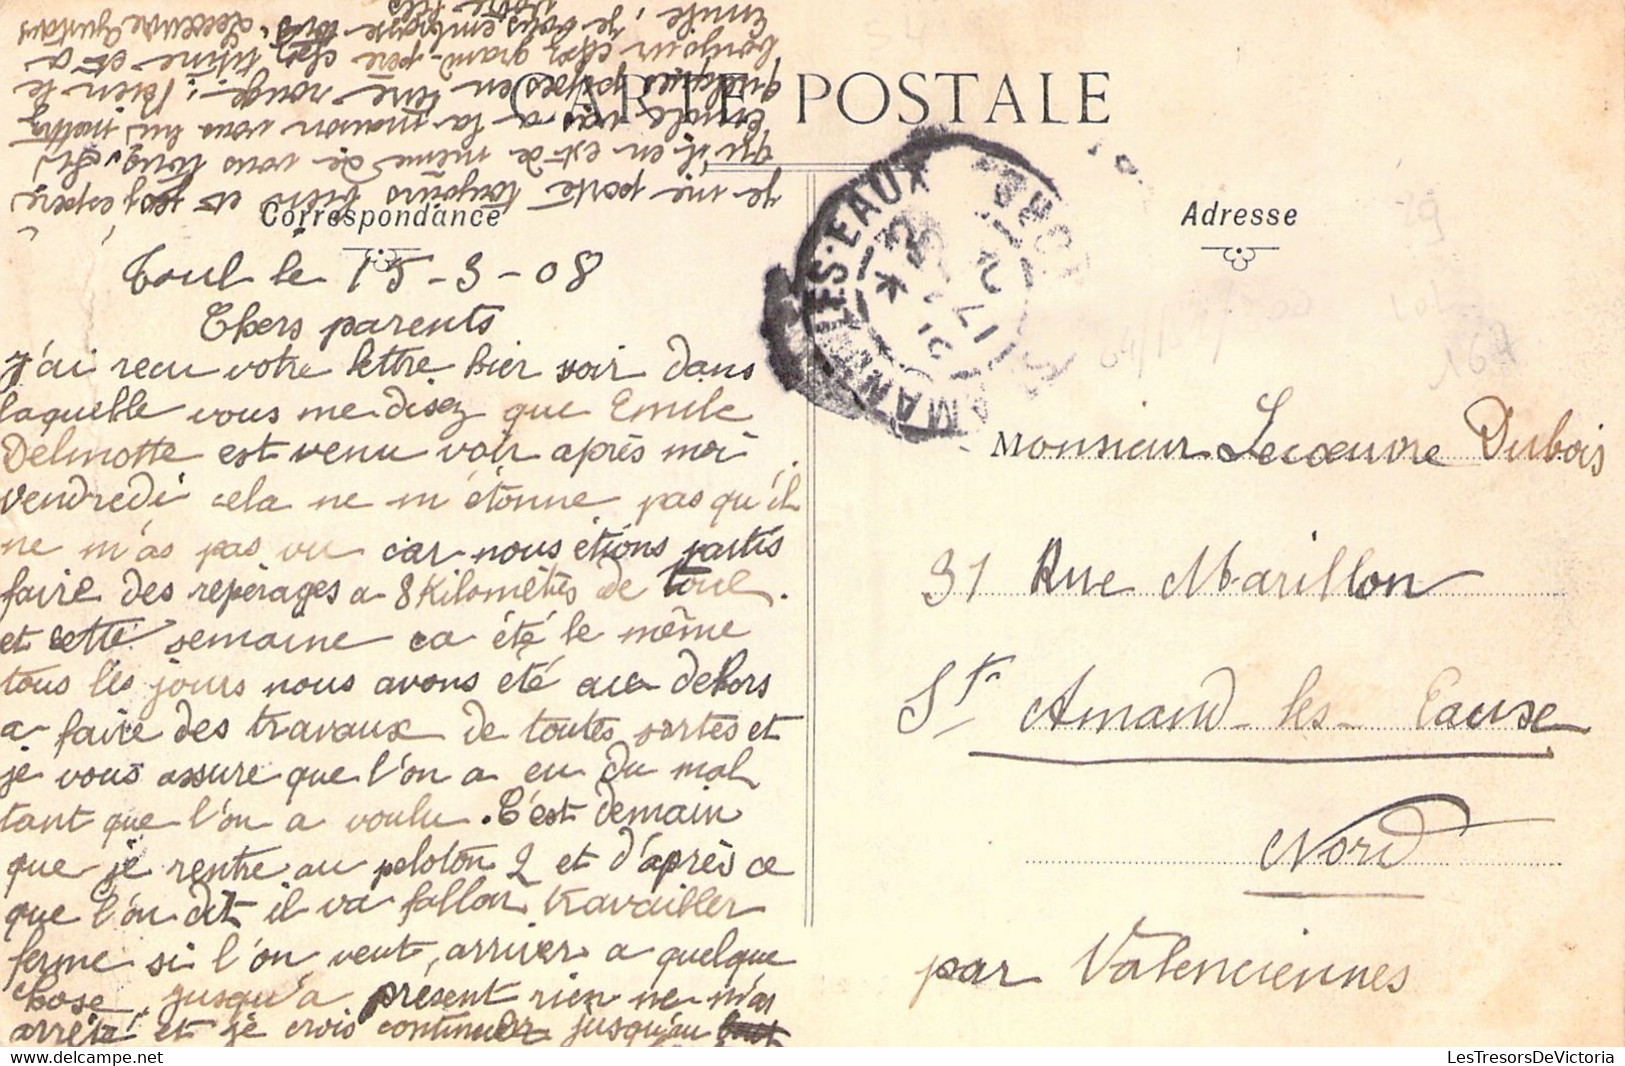 CARTE POSTALE
Correspondance
Toul le 15-3-08
Chers parents
J'ai reçu votre lettre hier soir dans
laquelle vous me disez que Emile
Delmotte est venu voir après moi
vendredi cela ne m'étonne pas qu'il
ne m'as pas vu car nous étions partis
faire des repérages a 8 Kilomètres de Toul.
et cette semaine ca été le même
tous les jours nous avons été au dehors
a faire des travaux de toutes sortes et
je vous assure que l'on a eu du mal
tant que l'on a voulu. C'est demain
que je rentre au peloton 2 et d'après ce
que l'on dit il va falloir travailler
ferme si l'on veut, arriver a quelque
chose, jusqu'a présent rien ne m'as
arrêté et je crois continuer jusqu'au bout
je me porte toujours bien et j'espère
qu'il en est de même de vous tous, si
Emile va a la maison vous lui mettrez
quelques pipes en terre rouge; bien le
bonjour chez grand-père chez titine et a
Emile, je vous embrasse tous,
votre fils Lecœuvre
Adresse
Monsieur Lecœuvre Dubois
31 Rue Marillon
St Amand-les-Eaux
Nord
par Valenciennes
ST AMAND-LES-EAUX
NORD
LesTresorsDeVictoria